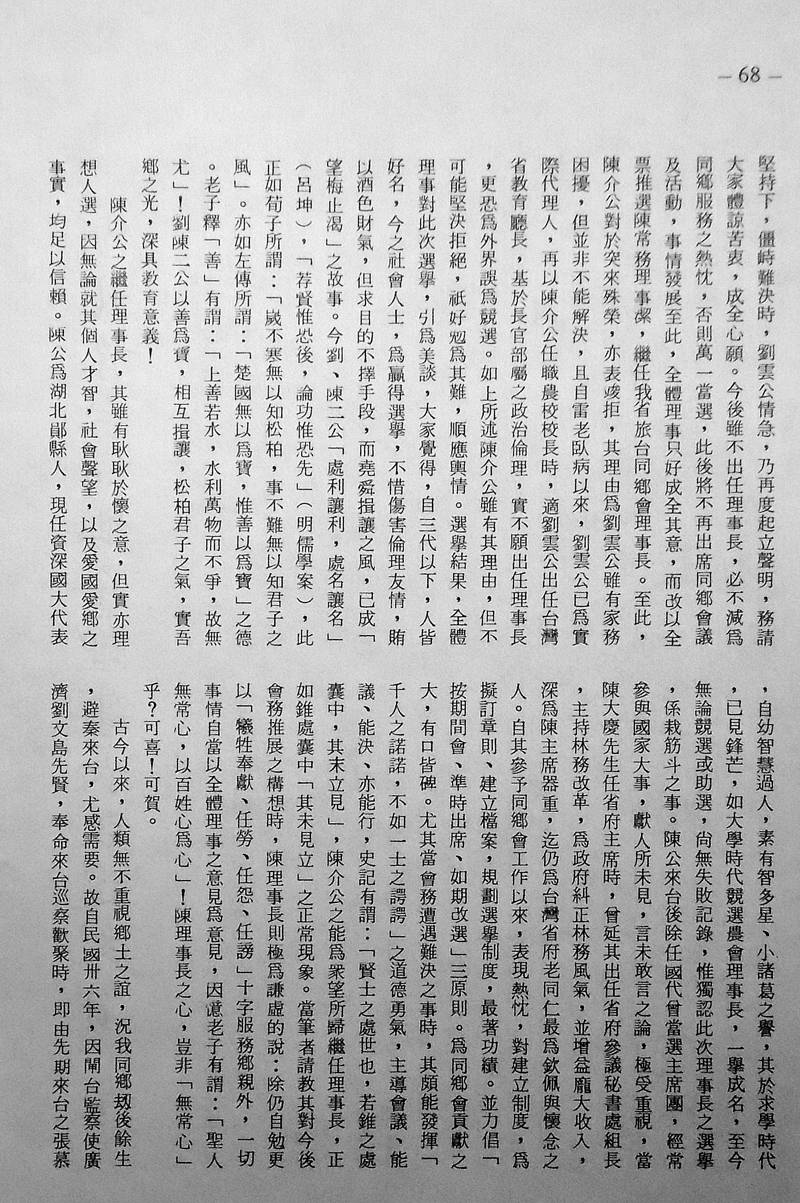 — 68 —
堅持下，僵峙難決時，劉雲公情急，乃再度起立聲明，務請
大家體諒苦衷，成全心願。今後雖不出任理事長，必不減爲
同鄉服務之熱忱，否則萬一當選，此後將不再出席同鄉會議
及活動，事情發展至此，全體理事只好成全其意，而改以全
票推選陳常務理事潔，繼任我省旅台同鄉會理事長。至此，
陳介公對於突來殊榮，亦表竣拒，其理由爲劉雲公雖有家務
困擾，但並非不能解決，且自雷老臥病以來，劉雲公已爲實
際代理人，再以陳介公任職農校校長時，適劉雲公出任台灣
省教育廳長，基於長官部屬之政治倫理，實不願出任理事長
，更恐爲外界誤爲競選。如上所述陳介公雖有其理由，但不
可能堅決拒絕，祇好勉爲其難，順應輿情。選舉結果，全體
理事對此次選舉，引爲美談，大家覺得，自三代以下，人皆
好名，今之社會人士，爲贏得選舉，不惜傷害倫理友情，賄
以酒色財氣，但求目的不擇手段，而堯舜揖讓之風，已成「
望梅止渴」之故事。今劉、陳二公「處利讓利，處名讓名」
（呂坤），「荐賢惟恐後，論功惟恐先」（明儒學案），此
正如荀子所謂：「歲不寒無以知松柏，事不難無以知君子之
風」。亦如左傳所謂：「楚國無以爲寶，惟善以爲寶」之德
。老子釋「善」有謂：「上善若水，水利萬物而不爭，故無
尤」！劉陳二公以善爲寶，相互揖讓，松柏君子之氣，實吾
鄉之光，深具教育意義！
陳介公之繼任理事長，其雖有耿耿於懷之意，但實亦理
想人選，因無論就其個人才智，社會聲望，以及愛國愛鄉之
事實，均足以信賴。陳公爲湖北鄖縣人，現任資深國大代表
，自幼智慧過人，素有智多星、小諸葛之譽，其於求學時代
，已見鋒芒，如大學時代競選農會理事長，一舉成名，至今
無論競選或助選，尙無失敗記錄，惟獨認此次理事長之選舉
，係栽筋斗之事。陳公來台後除任國代曾當選主席團，經常
參與國家大事，獻人所未見，言未敢言之論，極受重視，當
陳大慶先生任省府主席時，曾延其出任省府參議秘書處組長
，主持林務改革，爲政府糾正林務風氣，並增益龐大收入，
深爲陳主席器重，迄仍爲台灣省府老同仁最爲欽佩與懷念之
人。自其參予同鄉會工作以來，表現熱忱，對建立制度，爲
擬訂章則、建立檔案，規劃選舉制度，最著功績。並力倡「
按期間會、準時出席、如期改選」三原則。爲同鄉會貢獻之
大，有口皆碑。尤其當會務遭遇難決之事時，其頗能發揮「
千人之諾諾，不如一士之諤諤」之道德勇氣，主導會議、能
議、能決、亦能行，史記有謂：「賢士之處世也，若錐之處
囊中，其末立見」，陳介公之能爲衆望所歸繼任理事長，正
如錐處囊中「其未見立」之正常現象。當筆者請教其對今後
會務推展之構想時，陳理事長則極爲謙虛的說：除仍自勉更
以「犧牲奉獻、任勞、任怨、任謗」十字服務鄉親外，一切
事情自當以全體理事之意見爲意見，因憶老子有謂：「聖人
無常心，以百姓心爲心」！陳理事長之心，豈非「無常心」
乎？可喜！可賀。
古今以來，人類無不重視鄉土之誼，況我同鄉刼後餘生
，避秦來台，尤感需要。故自民國卅六年，因閩台監察使廣
濟劉文島先賢，奉命來台巡察歡聚時，即由先期來台之張慕